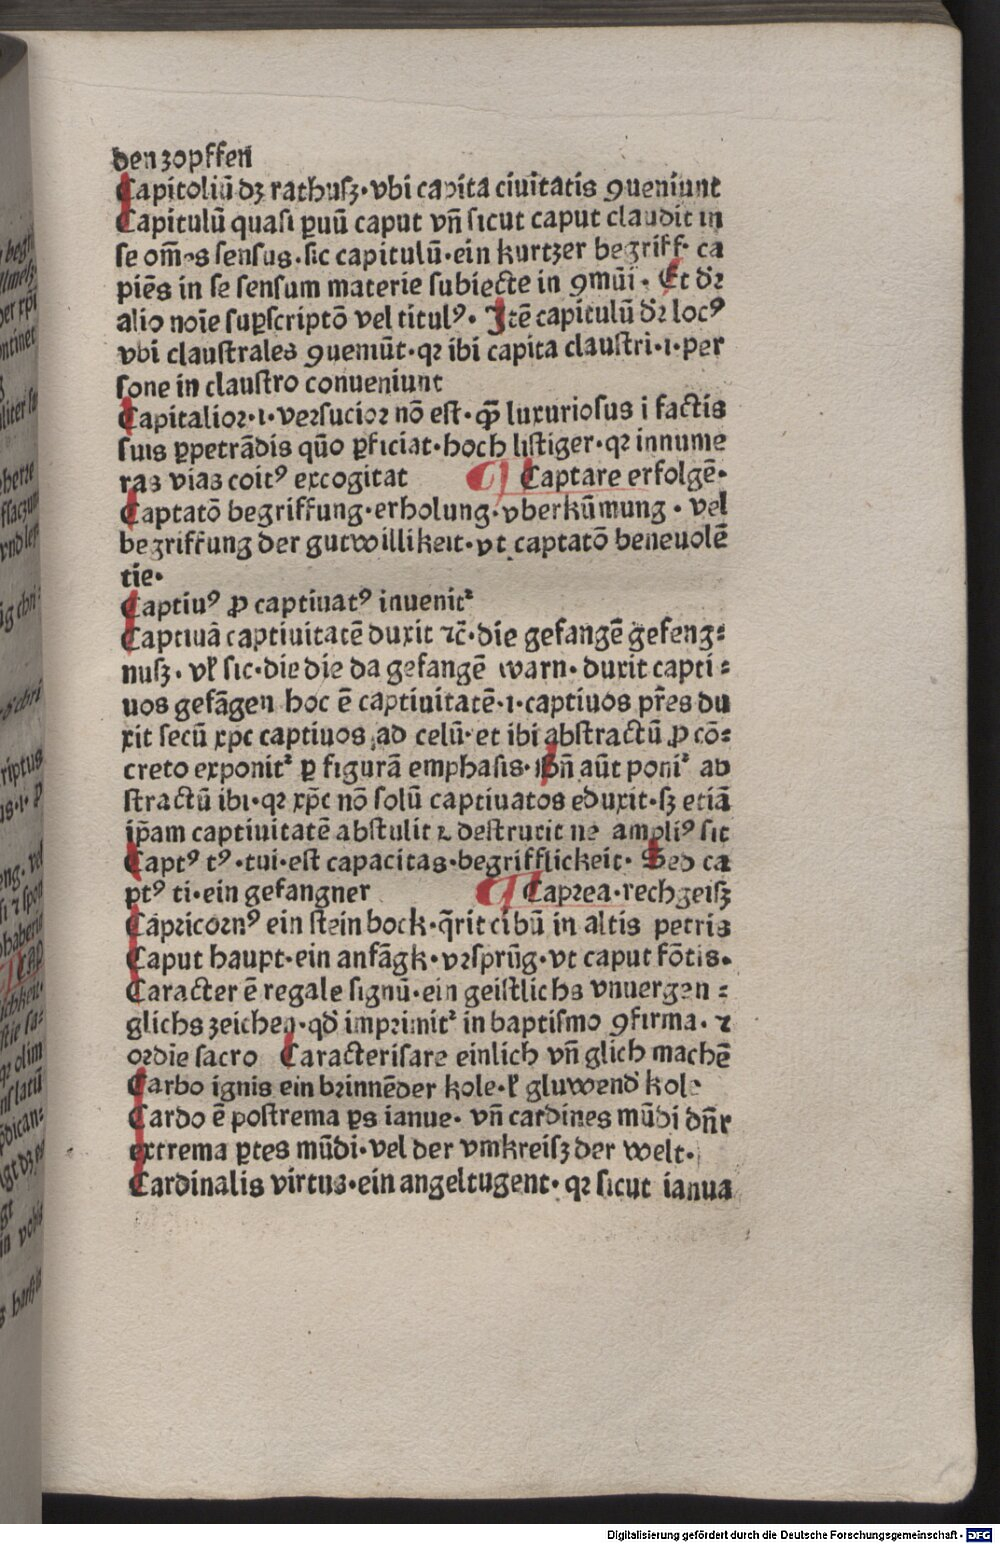 den zopffen
Capitoliū dʒ rathuſʒ·vbi capita ciuitatis ꝯueniunt
Capitulū quaſi ꝑuū caput vn̄ ſicut caput claudit in
ſe om̄es ſenſus·ſic capitulū·ein kurtzer begriff ca
piēs in ſe ſenſum materie ſubiecte in ꝯmūi· Et dꝛ
alio noīe ſuꝑſcriptō vel titulꝰ· Itē capitulū dꝛ locꝰ
vbi clauſtrales ꝯueniūt·qꝛ ibi capita clauſtri·i·per
ſone in clauſtro conueniunt
Capitalior·i·verſucioꝛ nō eſt·qꝙ luxurioſus i factis
ſuis ꝑpetrādis quo ꝑficiat·hoch liſtiger·qꝛ innume
ras vias coitꝰ excogitat ¶ Captare erfolgē·
Captatō begriffung·erholung·vberkūmung · vel
begriffung der gutwillikeit·vt captatō beneuolē
tie·
Captiuꝰ ꝓ captiuatꝰ inuenit᷑
Captiuā captiuitatē duxit ⁊c̄·die gefangē gefeng⸗
nuſʒ· vl̕ ſic·die die da gefangē warn· duxit capti⸗
uos gefāgen hoc ē captiuitatē·i·captiuos pr̄es du
xit ſecū xp̄c captiuos ad celū·et ibi abſtractū ꝓ cō⸗
creto exponit᷑ ꝑ figurā emphaſis· Vn̄ aūt poni᷑ ab
ſtractū ibi·qꝛ xp̄c nō ſolū captiuatos eduxit·ſʒ etiā
ip̄am captiuitatē abſtulit ⁊ deſtruxit ne ampliꝰ ſit
Captꝰ tꝰ·tui·eſt capacitas·begrifflickeit· Sed ca
ptꝰ ti·ein gefangner ¶ Caprea·rechgeiſʒ
Capricornꝰ ein ſteinbock·q̄rit cibū in altis petris
Caput haupt·ein anfāgk·vꝛſprūg·vt caput fōtis·
Caracter ē regale ſignū·ein geiſtlichs vnuergen⸗
glichs zeichen·qd̄ impꝛimit᷑ in baptiſmo ꝯfirma· ⁊
oꝛdīe ſacro Caracteriſare einlich vn̄ glich machē
Carbo ignis ein bꝛinnēder kole·l̕ gluwend kole
Cardo ē poſtrema ꝑs ianue· vn̄ cardines mūdi dn̄r
extrema ꝑtes mūdi·vel der vmkreiſʒ der welt·
Cardinalis virtus·ein angeltugent· qꝛ ſicut ianua
Digitalisierung gefördert durch die Deutsche Forschungsgemeinschaft - DFG